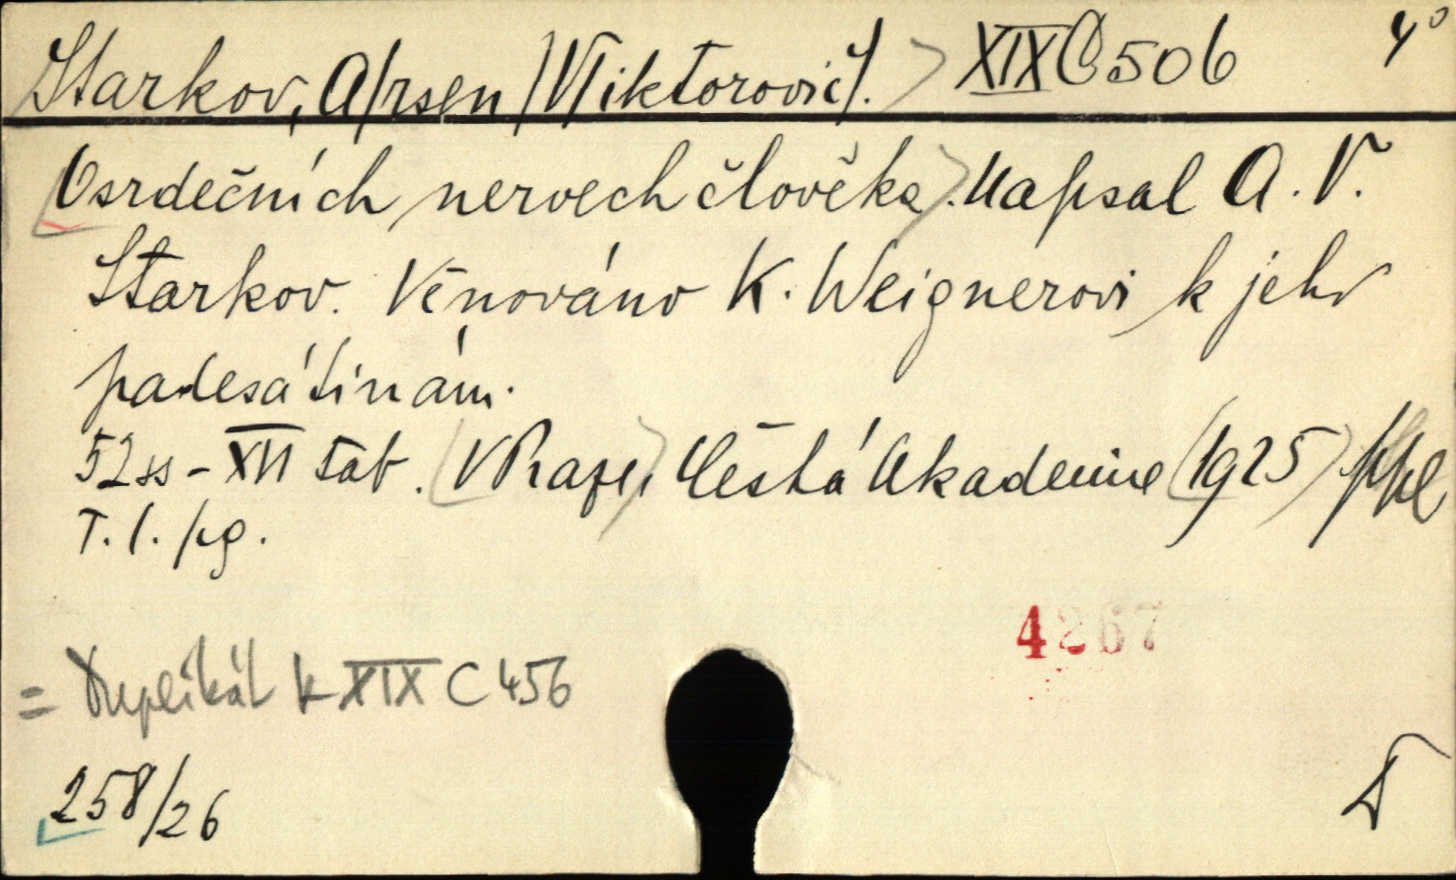 Starkov, A/rsen/ V/iktorovič/. XIX C 506 4°
O srdečních nervech člověka. Napsal A. V.
Starkov. Věnováno K. Weignerovi k jeho
padesátinám.
52 ss - XII tab. V Praze, Česká Akademie 1925
T. l. pg.
4267
= Duplikát k XIX C 456
258/26